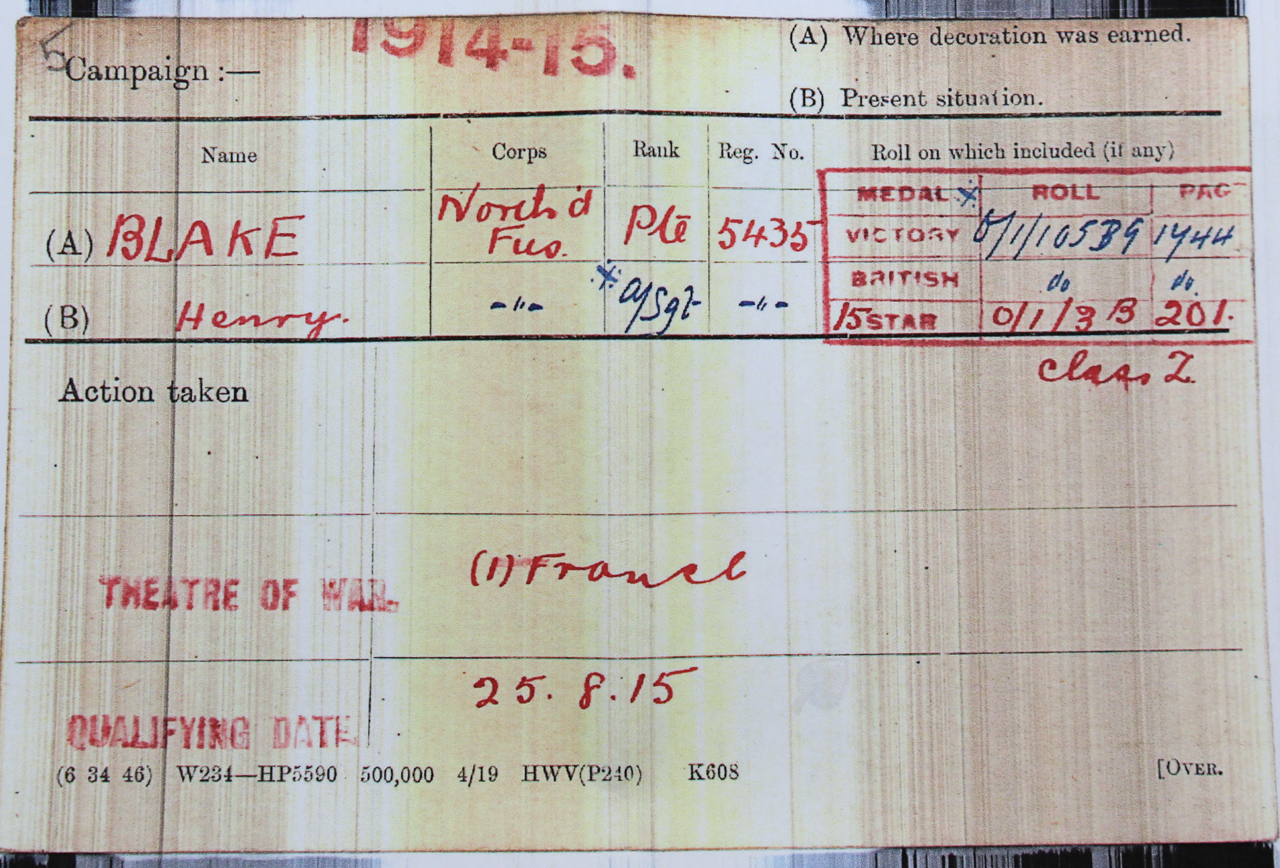 5
1914-15.
Campaign :—
(A) Where decoration was earned.
(B) Present situation.
Name Corps Rank Reg. No. Roll on which included (if any)
MEDAL * ROLL PAG
(A) BLAKE North'd Fus. Pte 5435 VICTORY 0/1/105B9 1744
BRITISH do do.
(B) Henry. -"- * A/Sgt -"- 15 STAR 0/1/3 B 201.
class Z
Action taken
THEATRE OF WAR. (1) France
25. 8. 15
QUALIFYING DATE
(6 34 46) W234—HP5590 500,000 4/19 HWV(P240) K608 [OVER.